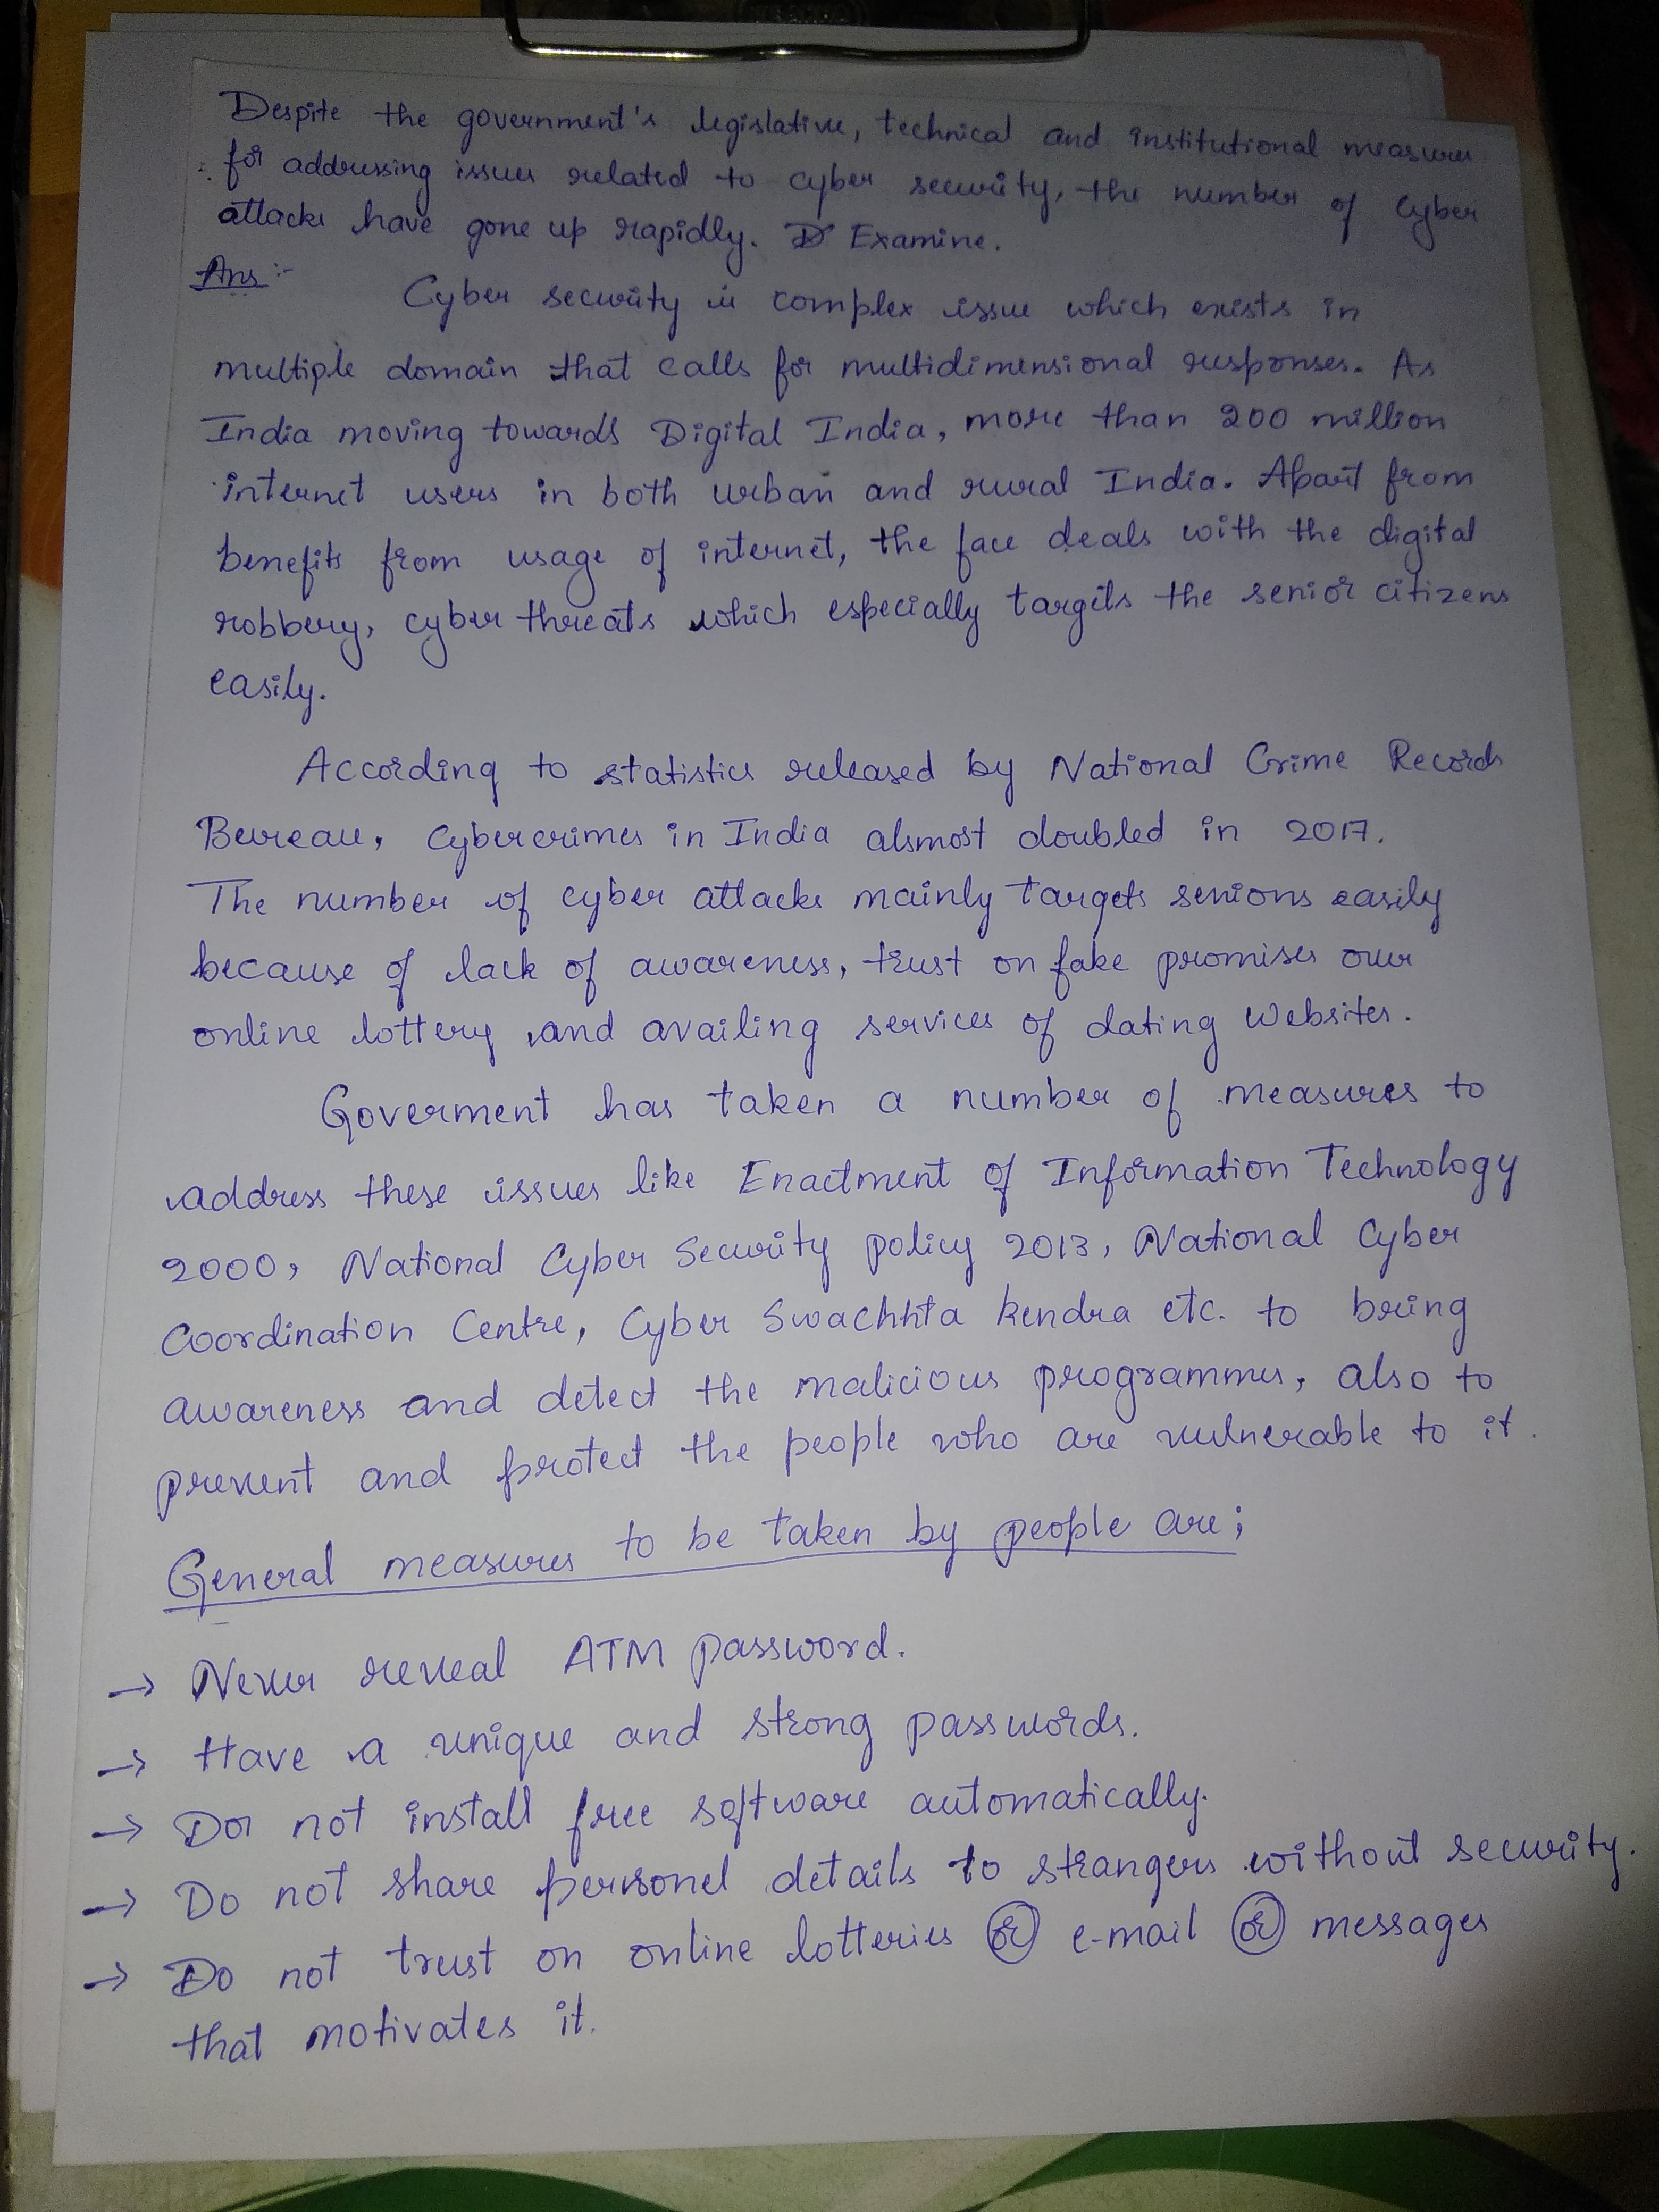 Despite the government's legislative, technical and institutional measures
for addressing issues related to cyber security, the number of Cyber
attacks have gone up rapidly. Examine.
Ans :-
Cyber security is complex issue which exists in
multiple domain that calls for multidimensional responses. As
India moving towards Digital India, more than 200 million
internet users in both urban and rural India. Apart from
benefits from usage of internet, the face deals with the digital
robbery, cyber threats which especially targets the senior citizens
easily.
According to statistics released by National Crime Records
Bureau, Cybercrimes in India alsmost doubled in 2017.
The number of cyber attacks mainly targets seniors easily
because of lack of awareness, trust on fake promises over
online lottery and availing services of dating websites.
Goverment has taken a number of measures to
address these issues like Enactment of Information Technology
2000, National Cyber Security policy 2013, National Cyber
Coordination Centre, Cyber Swachhta Kendra etc. to bring
awareness and detect the malicious programmes, also to
prevent and protect the people who are vulnerable to it.
General measures to be taken by people are;
→ Never reveal ATM password.
→ Have a unique and strong passwords.
→ Do not install free software automatically.
→ Do not share personel details to strangers without security.
→ Do not trust on online lotteries or e-mail or messages
that motivates it.